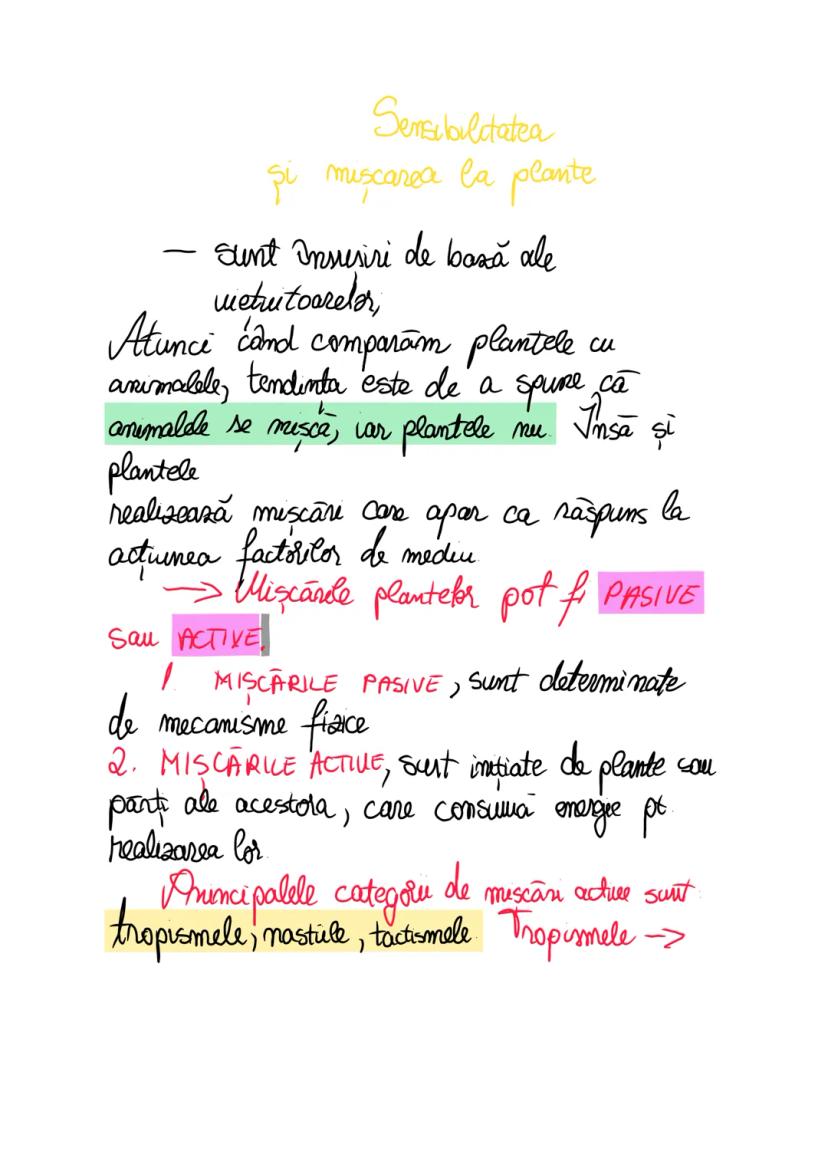 Sensibilitatea
și mișcarea la plante
— sunt însușiri de bază ale
viețuitoarelor,
Atunci când comparăm plantele cu
animalele, tendința este de a spune că
animalele se mișcă, iar plantele nu. Însă și
plantele
realizează mișcări care apar ca răspuns la
acțiunea factorilor de mediu
→ Mișcările plantelor pot fi PASIVE
sau ACTIVE.
1. MIȘCĂRILE PASIVE, sunt determinate
de mecanisme fizice
2. MIȘCĂRILE ACTIVE, sunt inițiate de plante sau
părți ale acestora, care consumă energie pt.
realizarea lor.
Principalele categorii de mișcări active sunt:
tropismele, nastiile, tactismele. Tropismele →